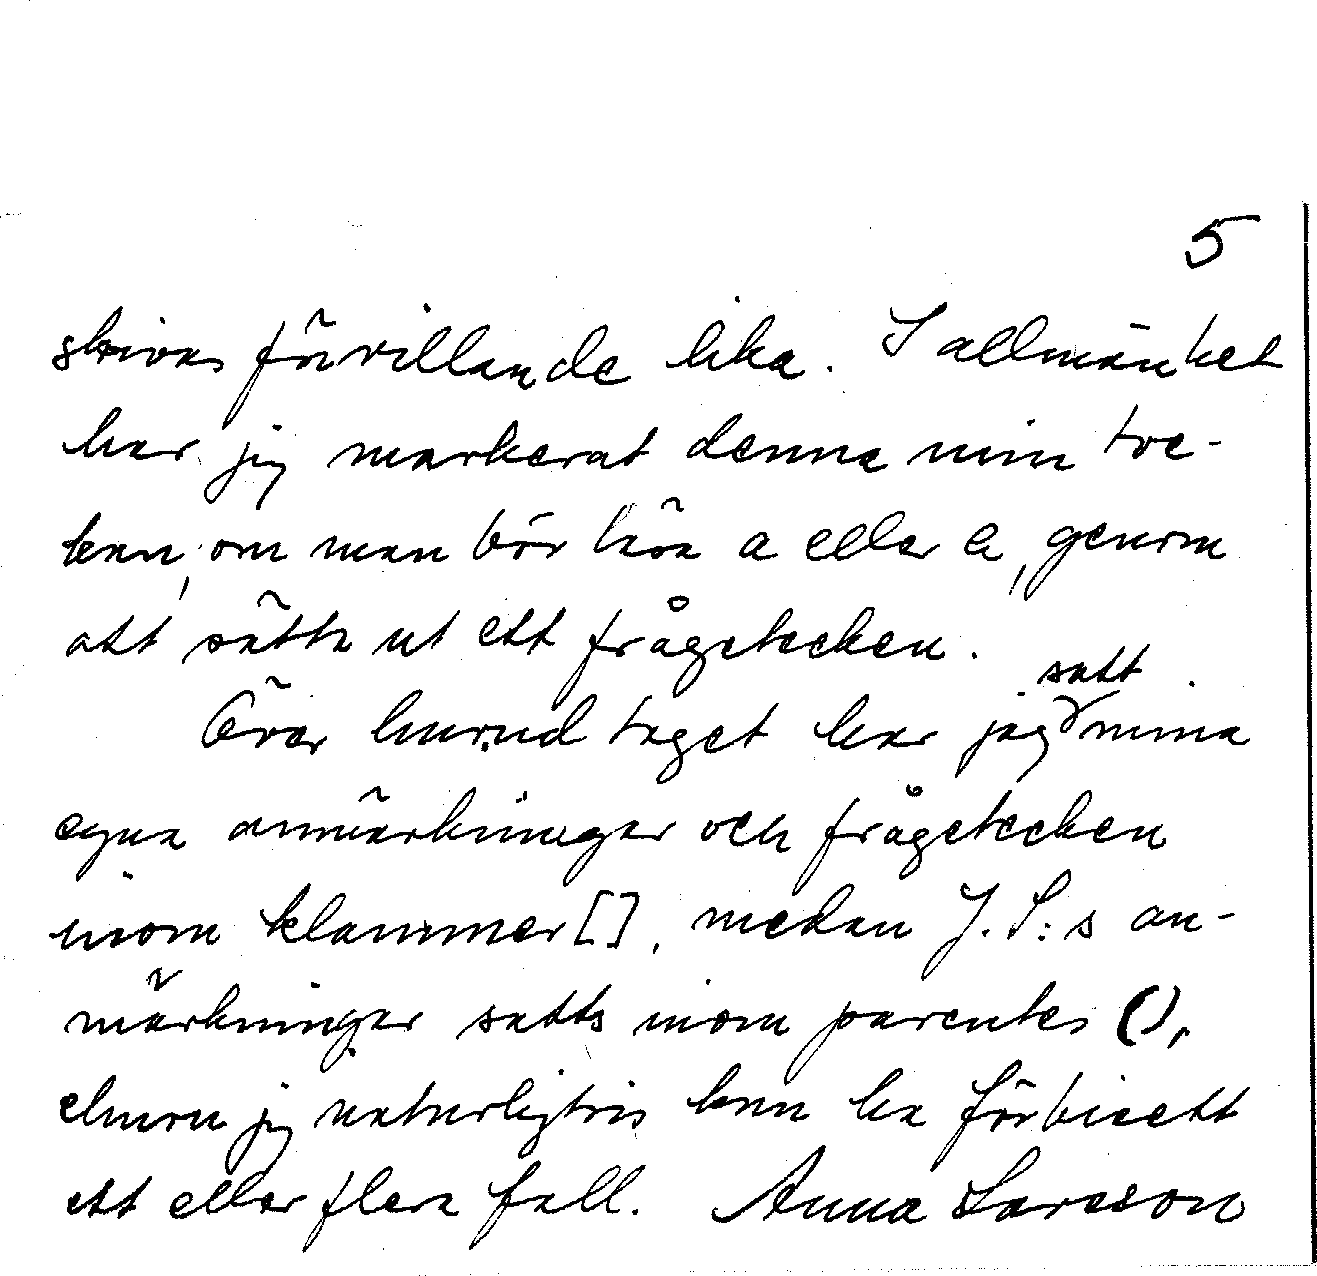 5
skrivas förvillande lika. I allmänhet
har jag markerat denna min tve-
kan, om man bör läsa a eller e, genom
att sätta ut ett frågetecken.
satt
Över huvud taget har jag mina
egna anmärkningar och frågetecken
inom klammer [], medan J. S:s an-
märkningar satts inom parentes (),
ehuru jag naturligtvis kan ha förbisett
ett eller flera fall. Anna Larsson